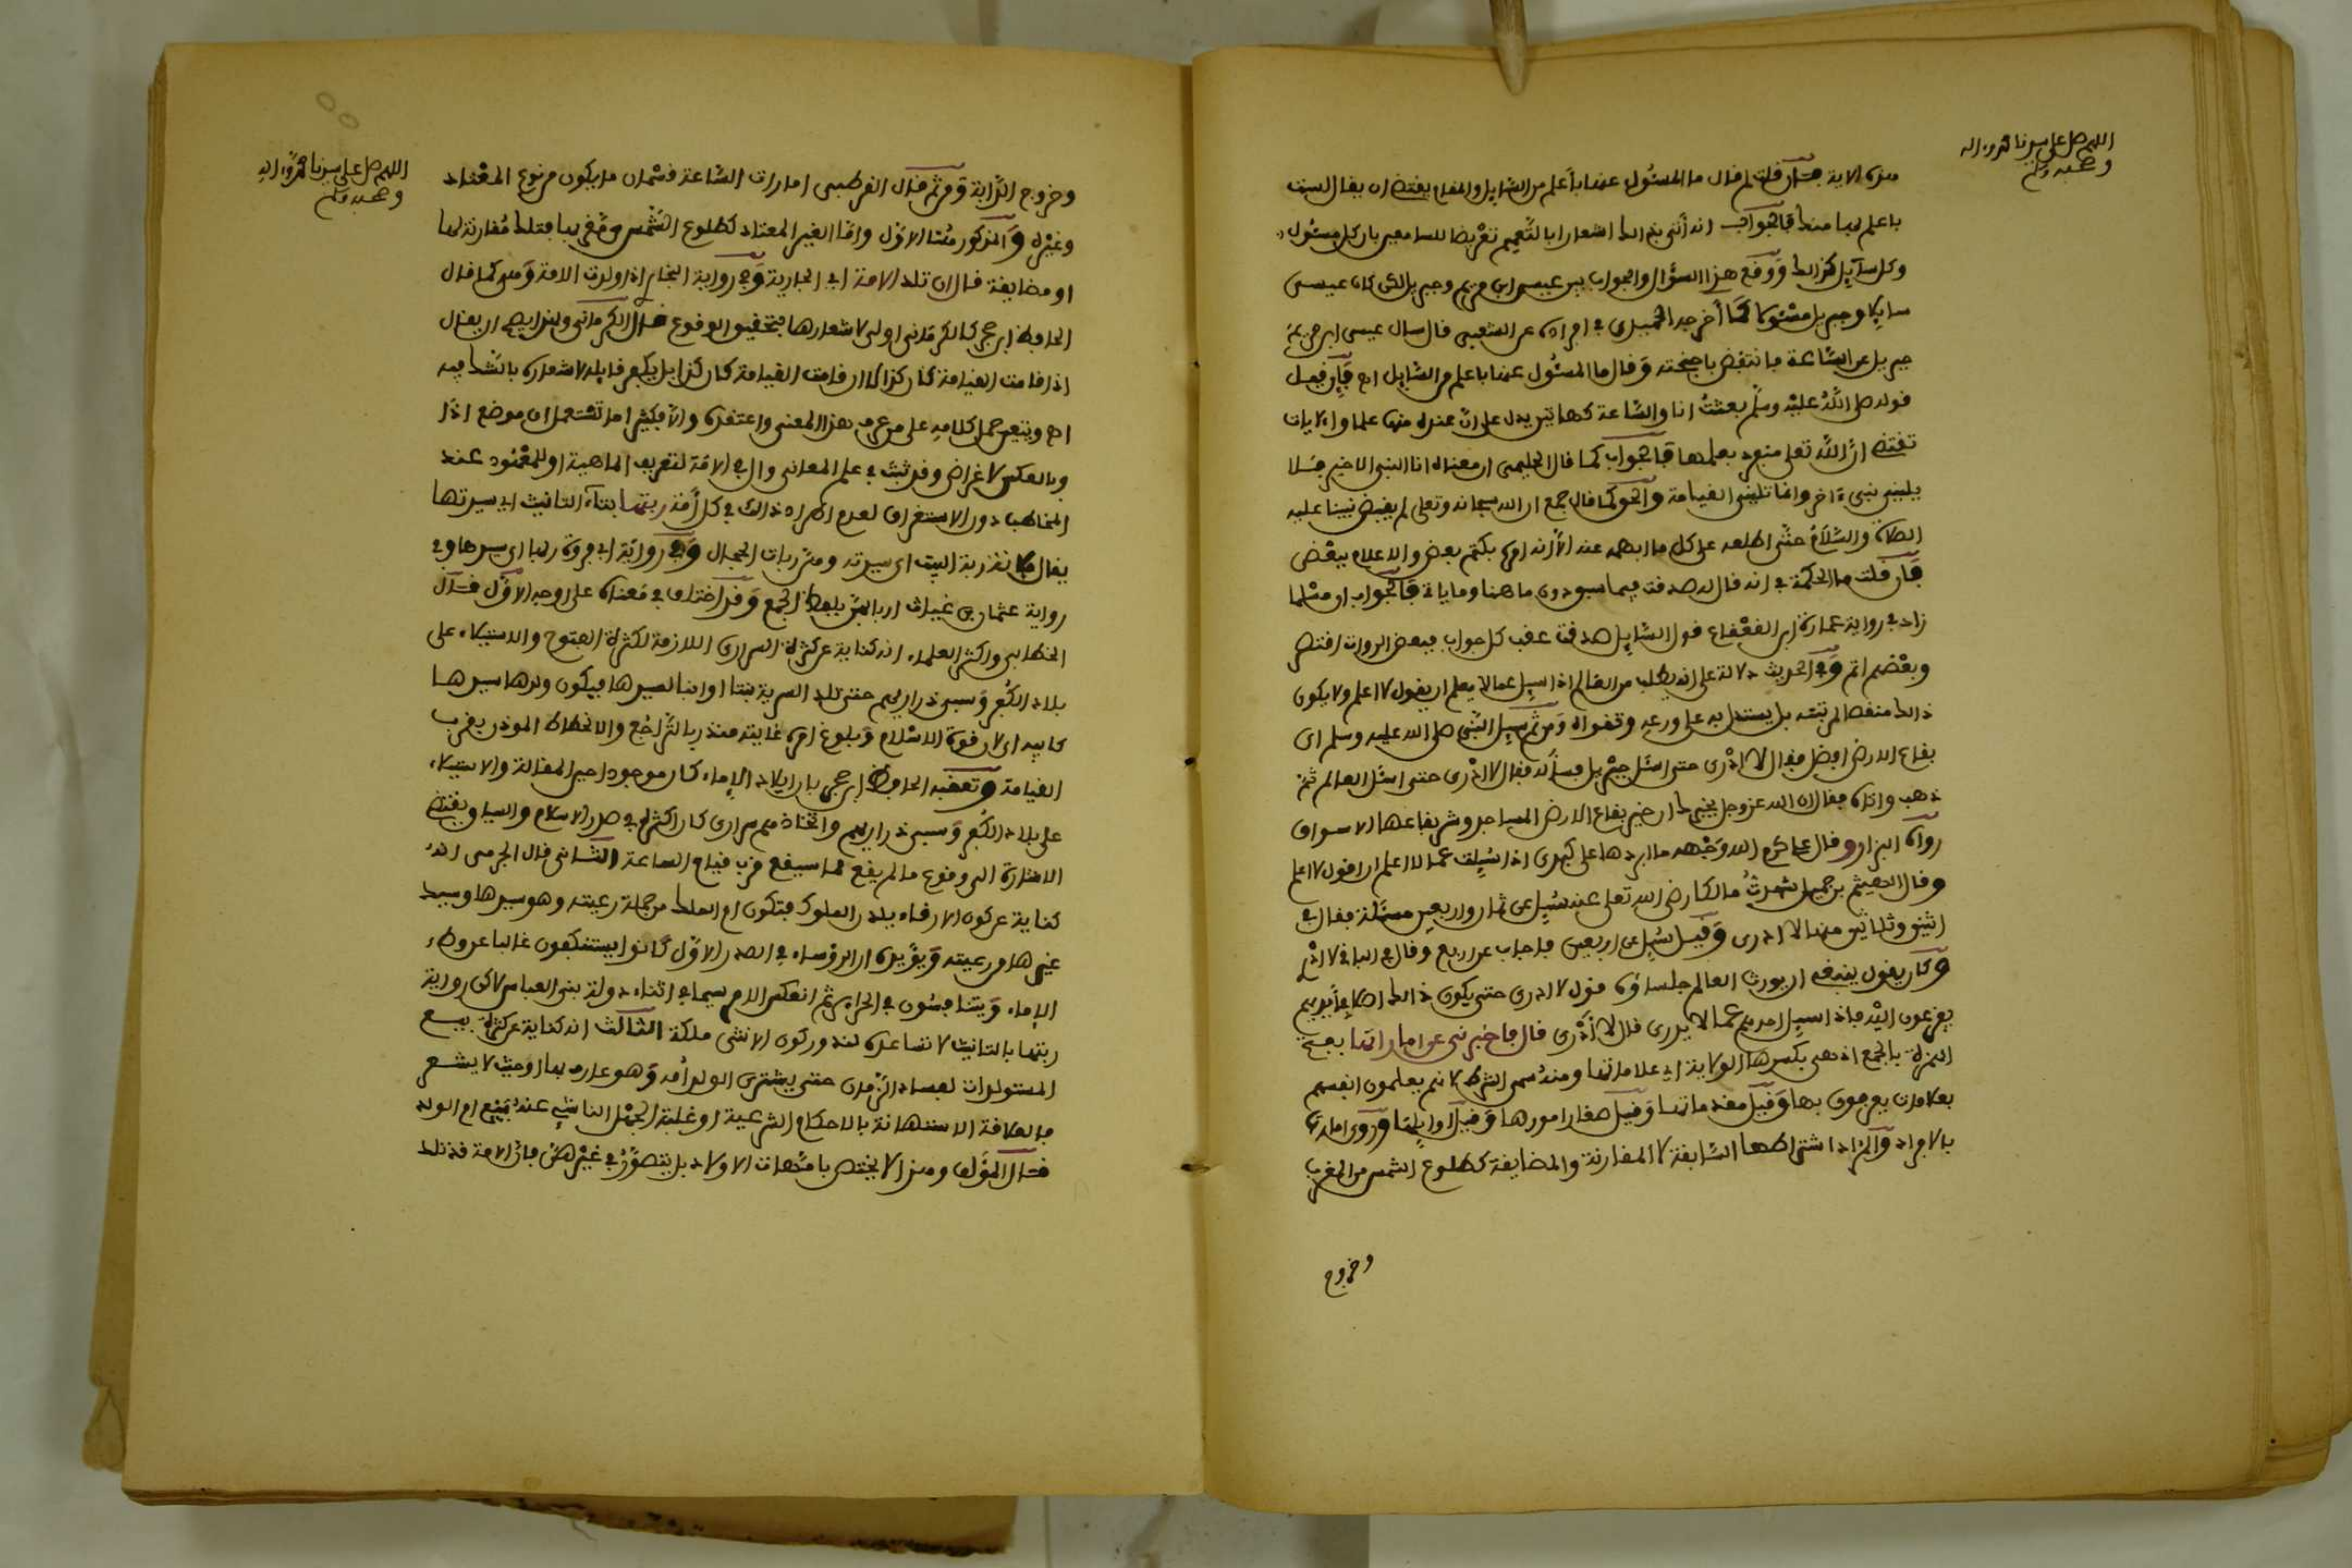 اللهم صل على سيدنا محمد وآله
وصحبه وسلم
هذه الاية فإن قلت لم قال ما المسئول عنها بأعلم من السايل والمقام يقتضى ان يقال لست
باعلم بها منك فالجواب انه أتى بذلك اشعارا بالتعميم تعريضا للسامعين بان كل مسئول
وكل سآيل كذلك ووقع هذا السؤال والجواب بين عيسى ابن مريم وجبريل لكن كان عيسى
سايلا وجبريل مسئولا كما أخرجه الحميدى في افراده عن الشعبى قال سال عيسى ابن مريم
جبريل عن الساعة فانتفض باجنحته وقال ما المسئول عنها باعلم من السايل اه فإن قيل
قوله صلى الله عليه وسلم بعثت انا والساعة كهاتين يدل على ان عنده منها علما والايات
تقتضى ان الله تعلى منفرد بعلمها فالجواب كما قال الحليمى ان معناه انا النبى الاخير فلا
يلينى نبىء اخر وانما تلينى القيامة والحق كما قال جمع ان الله سبحانه وتعلى لم يقبض نبينا عليه
الصلاة والسلام حتى اطلعه على كل ما ابهمه عنه الا انه امره بكتم بعض والاعلام ببعض
فإن قلت ما الحكمة في انه قال له صدقت فيما سبق دون ما هنا وما ياتي فالجواب ان مسلما
زاد في رواية عمارة ابن القعقاع قول السايل صدقت عقب كل جواب فبعض الروات اقتصر
وبعضهم اتم وفي الحديث دلالة على انه يطلب من العالم اذا سيل عما لا يعلم ان يقول لا اعلم ولا يكون
ذالك منقصا لمرتبته بل يستدل به على ورعه وتقواه ومن ثم سيل النبى صلى الله عليه وسلم اى
بقاع الارض افضل فقال لا ادرى حتى اسئل جبريل فسأله فقال لا ادرى حتى اسئل العالم ثم
ذهب واتاه فقال ان الله عز وجل يخبرك ان خير بقاع الارض المساجد وشر بقاعها الاسواق
رواه البزار وقال على كرم الله وجهه ما ابردها على كبدى اذا سيلت عما لا اعلم ان اقول لا اعلم
وقال الهيثم بن جميل شهدت مالكا رضى الله تعلى عنه سيل عن ثمان واربعين مسئلة فقال في
اثنين وثلاثين منها لا ادرى وقيل سيل عن اربعين فاجاب عن اربع وقال في الباقى لا ادرى
وكان يقول ينبغى ان يورث العالم جلساؤه قول لا ادرى حتى يكون ذالك اصلا في أيديهم
يفزعون اليه فاذا سيل احدهم عما لا يدرى قال لا أدرى قال فاخبرنى عن اماراتها بفتح
الهمزة بالجمع اذ هى بكسرها الولاية اى علاماتها ومنه سمى الشرط لانهم يعلمون انفسهم
بعلامات يعرفون بها وقيل مقدماتها وقيل صغار امورها وقيل اوايلها وروى امارتها
بالافراد والمراد اشراطها السابقة لا المقارنة والمضايقة كطلوع الشمس من المغرب
وخروج
اللهم صل على سيدنا محمد وآله
وصحبه وسلم
وخروج الدابة ومن ثم قال القرطبى امارات الساعة قسمان ما يكون من نوع المعتاد
وغيره والمذكور هنا الاول واما الغير المعتاد كطلوع الشمس من مغربها فتلك مقارنة لها
او مضايقة قال ان تلد الامة اى الجارية وفي رواية البخارى اذا ولدت الامة وهى كما قال
الحافظ ابن حجر كالكرمانى اولى لاشعارها بتحقيق الوقوع قال الكرمانى ولذا يصح ان يقال
اذا قامت القيامة كان كذا لا ان قامت القيامة كان كذا بل يكفر قايله لاشعاره بالشك فيه
اه ويتعين حمل كلامه على من عرف هذا المعنى واعتقده والا فكثيرا ما تستعمل ان موضع اذا
وبالعكس لاغراض وقد ثبت في علم المعانى وال في الامة لتعريف الماهية او للمعهود عند
المخاطب دون الاستغراق لعدم اطراد ذالك في كل أمة ربتها بتاء التانيث اى سيدتها
يقال للانثى ربة البيت اى سيدته ومن ربات الحجال وفي رواية ابى فروة ربها اى سيدها وفي
رواية عثمان بن غياث اربابهن بلفظ الجمع وقد اختلف في معناه على اوجه الاول قال
الخطابى واكثر العلماء انه كناية عن كثرة السرارى اللازمة لكثرة الفتوح والاستيلاء على
بلاد الكفر وسبى ذراريهم حتى تلد السرية بنتا او ابنا لسيدها فيكون ولدها سيدها
كابيه اى لان قوة الاسلام وبلوغ امره غايته منذر بالتراجع والانحطاط الموذن بقرب
القيامة وتعقبه الحافظ ابن حجر بان ايلاد الإماء كان موجودا حين المقالة والاستيلاء
على بلاد الكفر وسبى ذراريهم واتخاذهم سرارى كان اكثره في صدر الاسلام والسياق يقتضى
الاشارة الى وقوع ما لم يقع مما سيقع قرب قيام الساعة الثانى قال الحربى انه
كناية عن كون الارقاء يلدن الملوك فتكون ام الملك من جملة رعيته وهو سيدها وسيد
غيرها من رعيته ويؤيده ان الرؤساء في الصدر الاول كانوا يستنكفون غالبا عن وطء
الإماء ويتنافسون في الحراير ثم انعكس الامر سيما في اثناء دولة بنى العباس لاكن رواية
ربتها بالتانيث لا تساعده لندور كون الانثى ملكة الثالث انه كناية عن كثرة بيع
المستولدات لفساد الزمان حتى يشترى الولد أمه وهو عارف بها او حيث لا يشعر
فالعلاقة الاستهانة بالاحكام الشرعية او غلبة الجهل الناشى عنه بيع ام الولد
قال المؤلف وهذا لا يختص بامهات الاولاد بل يتصور في غيرهن فان الامة قد تلد